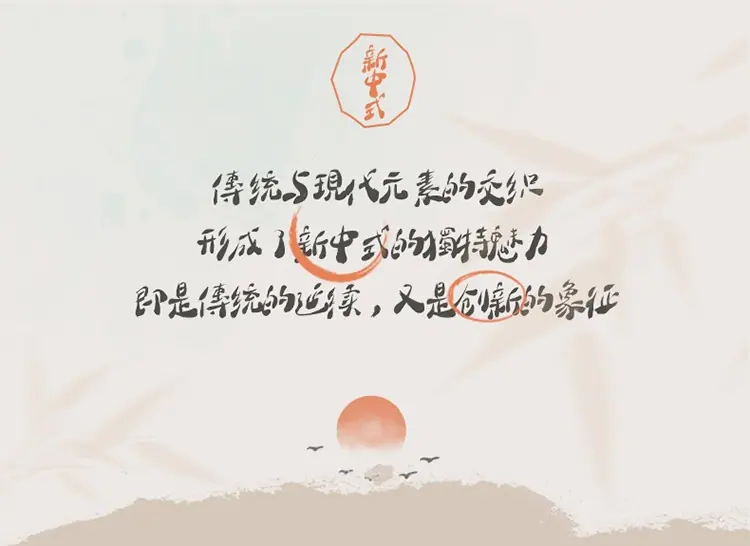 新中式
傳統与現代元素的交织
形成了新中式的獨特魅力
即是傳統的延续，又是创新的象征